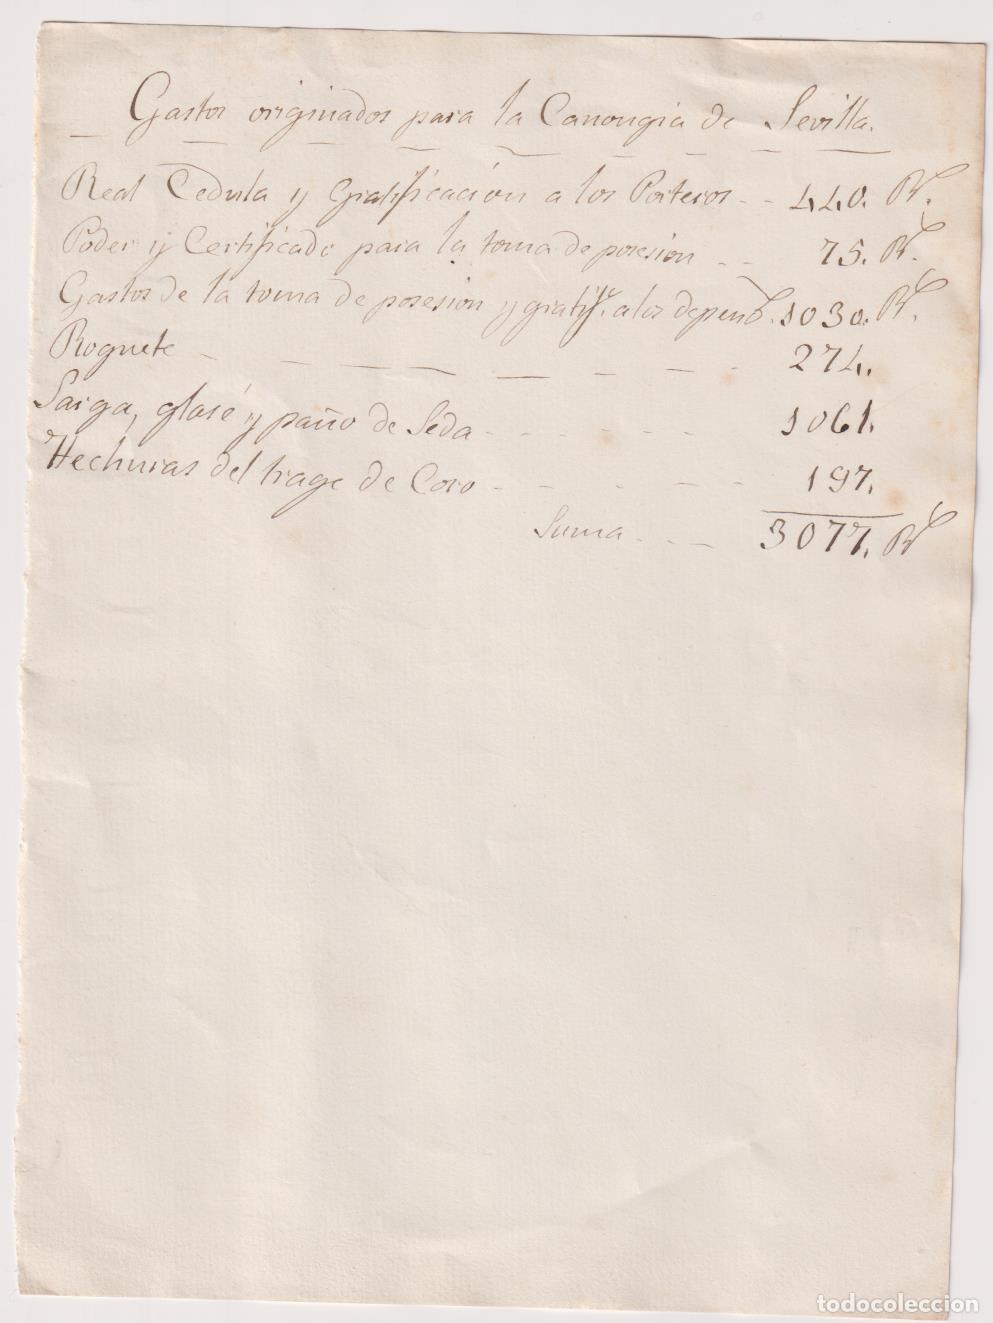 Gastos originados para la Canongia de Sevilla.
Real Cedula y Gratificacion a los Porteros -- 440. Rs.
Poder y Certificado para la toma de posesion -- 75. Rs.
Gastos de la toma de posesion y gratif.ne a los depend.s 1030. Rs.
Roquete - - - - - - - 274.
Sarga, glasé y paño de Seda - - - - - - 1061.
Hechuras del trage de Coro - - - - - - 197.
Suma - - - 3077. Rs
todocoleccion